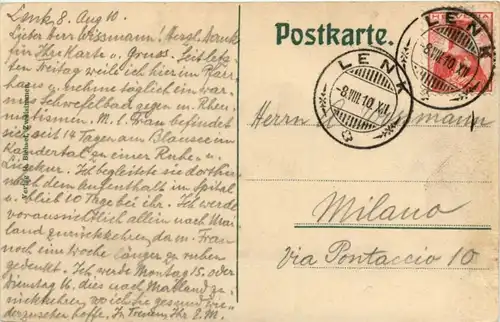 Lenk, 8. Aug 10.
Lieber Herr Wissmann! Herzl. Dank
für Ihre Karte u. Gruss. Seit letz-
ten Freitag weile ich hier im Pfarr-
haus u. nehme täglich ein war-
mes Schwefelbad gegen m. Rheu-
matismen. M. l. Frau befindet
sich seit 14 Tagen am Blausee im
Kandertal zu einer Ruhe- u.
Luftkur. Ich begleitete sie dorthin
nach dem Aufenthalt im Spital
u. blieb 10 Tage bei ihr. Ich werde
voraussichtlich allein nach Mai-
land zurückkehren, da m. Frau
noch eine Woche länger zu ruhen
gedenkt. Ich werde Montag 15. oder
Dienstag 16. dies nach Mailand zu-
rückkehren, wo ich Sie gesund wie-
derzusehen hoffe. In Treuen, Ihr
Postkarte.
LENK
-8.VIII.10.XII
LENK
-8.VIII.10.XII
Herrn Wissmann
Milano
Via Pontaccio 10